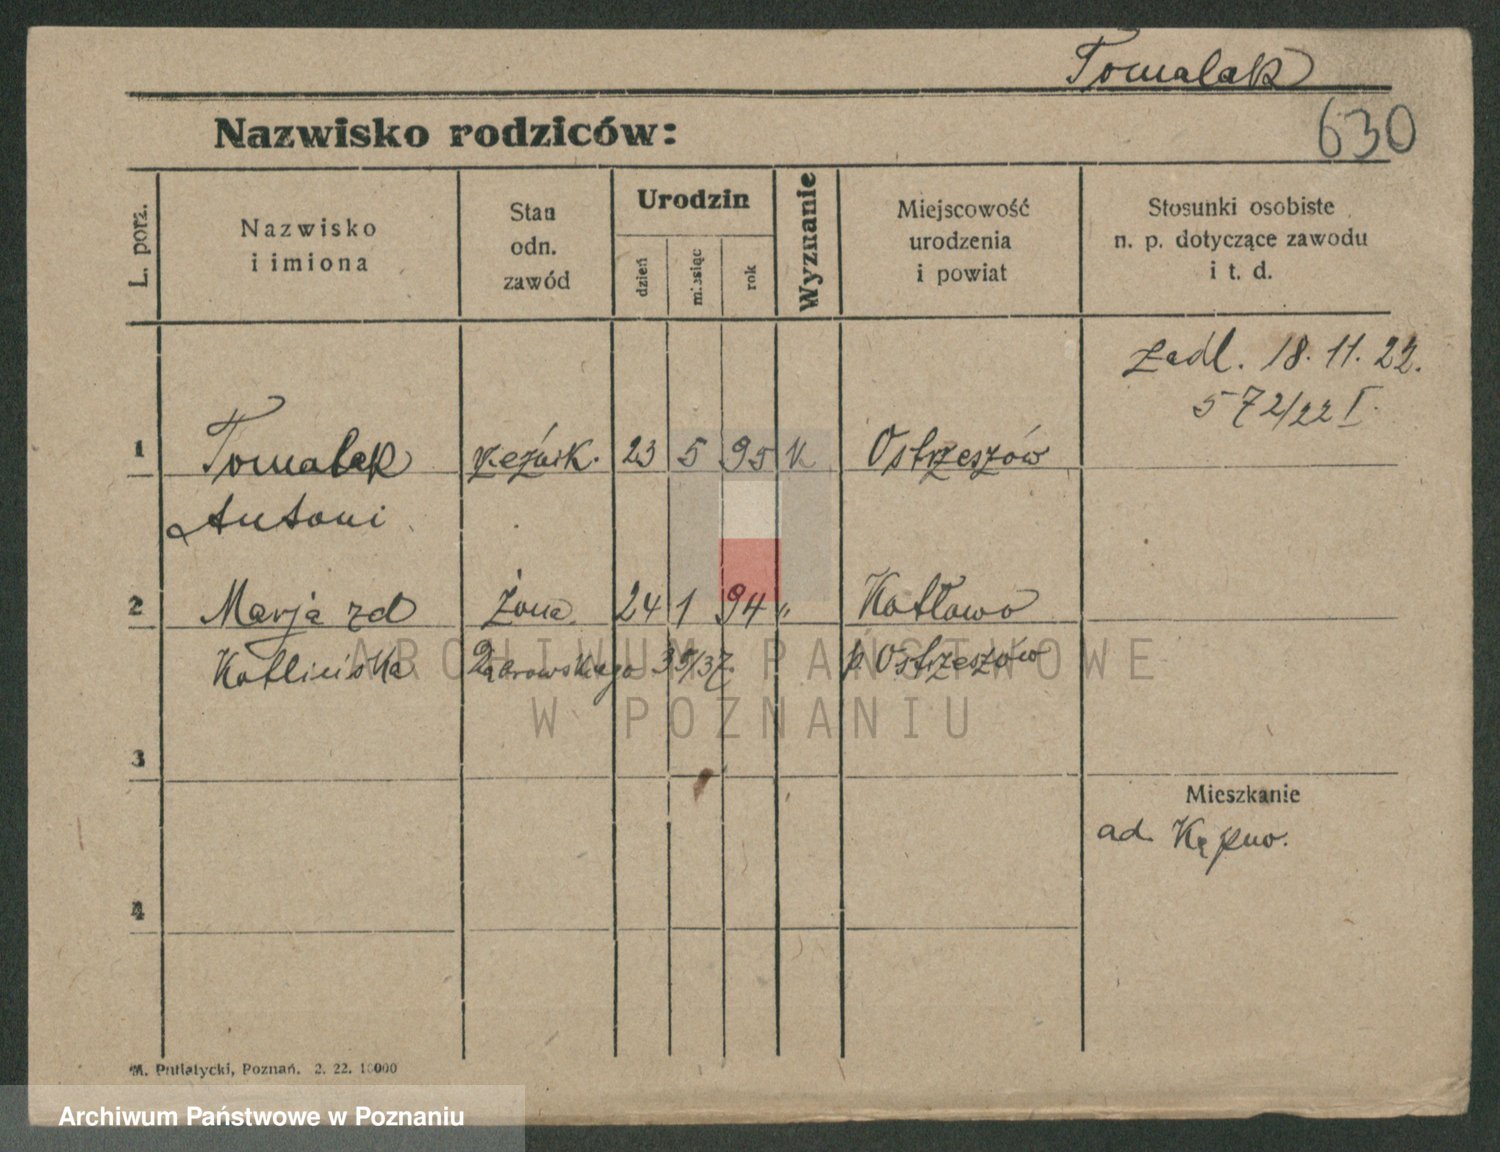 Tomalak
630
Nazwisko rodziców:
L. porz.
Nazwisko
i imiona
Stan
odn.
zawód
Urodzin
dzień
miesiąc
rok
Wyznanie
Miejscowość
urodzenia
i powiat
Stosunki osobiste
n. p. dotyczące zawodu
i t. d.
zadl. 18. 11. 22.
572/22 I.
1 Tomalak rzeźnik. 23 5 95 k Ostrzeszów
Antoni
2 Marja zd żona. 24 1 94 " Kotłowo
Kotlińska Dąbrowskiego 35/37. p. Ostrzeszów
ARCHIWUM PAŃSTWOWE
W POZNANIU
3
Mieszkanie
ad. Kępno.
4
M. Putiatycki, Poznań. 2. 22. 10000
Archiwum Państwowe w Poznaniu